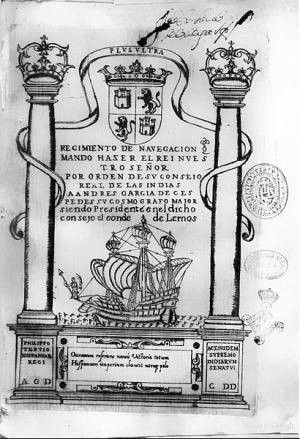 PLVS VLTRA
REGIMIENTO DE NAVEGACION Q̃
MANDO HASER EL REI NVES
TRO SEÑOR
POR ORDEN DE SV CONSEIO
REAL DE LAS INDIAS
A ANDRES GARCIA DE CES
PEDES SV COSMOGRAFO MAIOR
siendo Presidente en el dicho
consejo el conde de Lemos
PHILIPPO
TERTIO
HISPANIAR
REGI
A G D
Oceanum reserans navis Victoria totum
Hispanum imperium clausit utroq polo
AC EIVSDEM
SVPREMO
INDIARVM
SENATVI
C DD